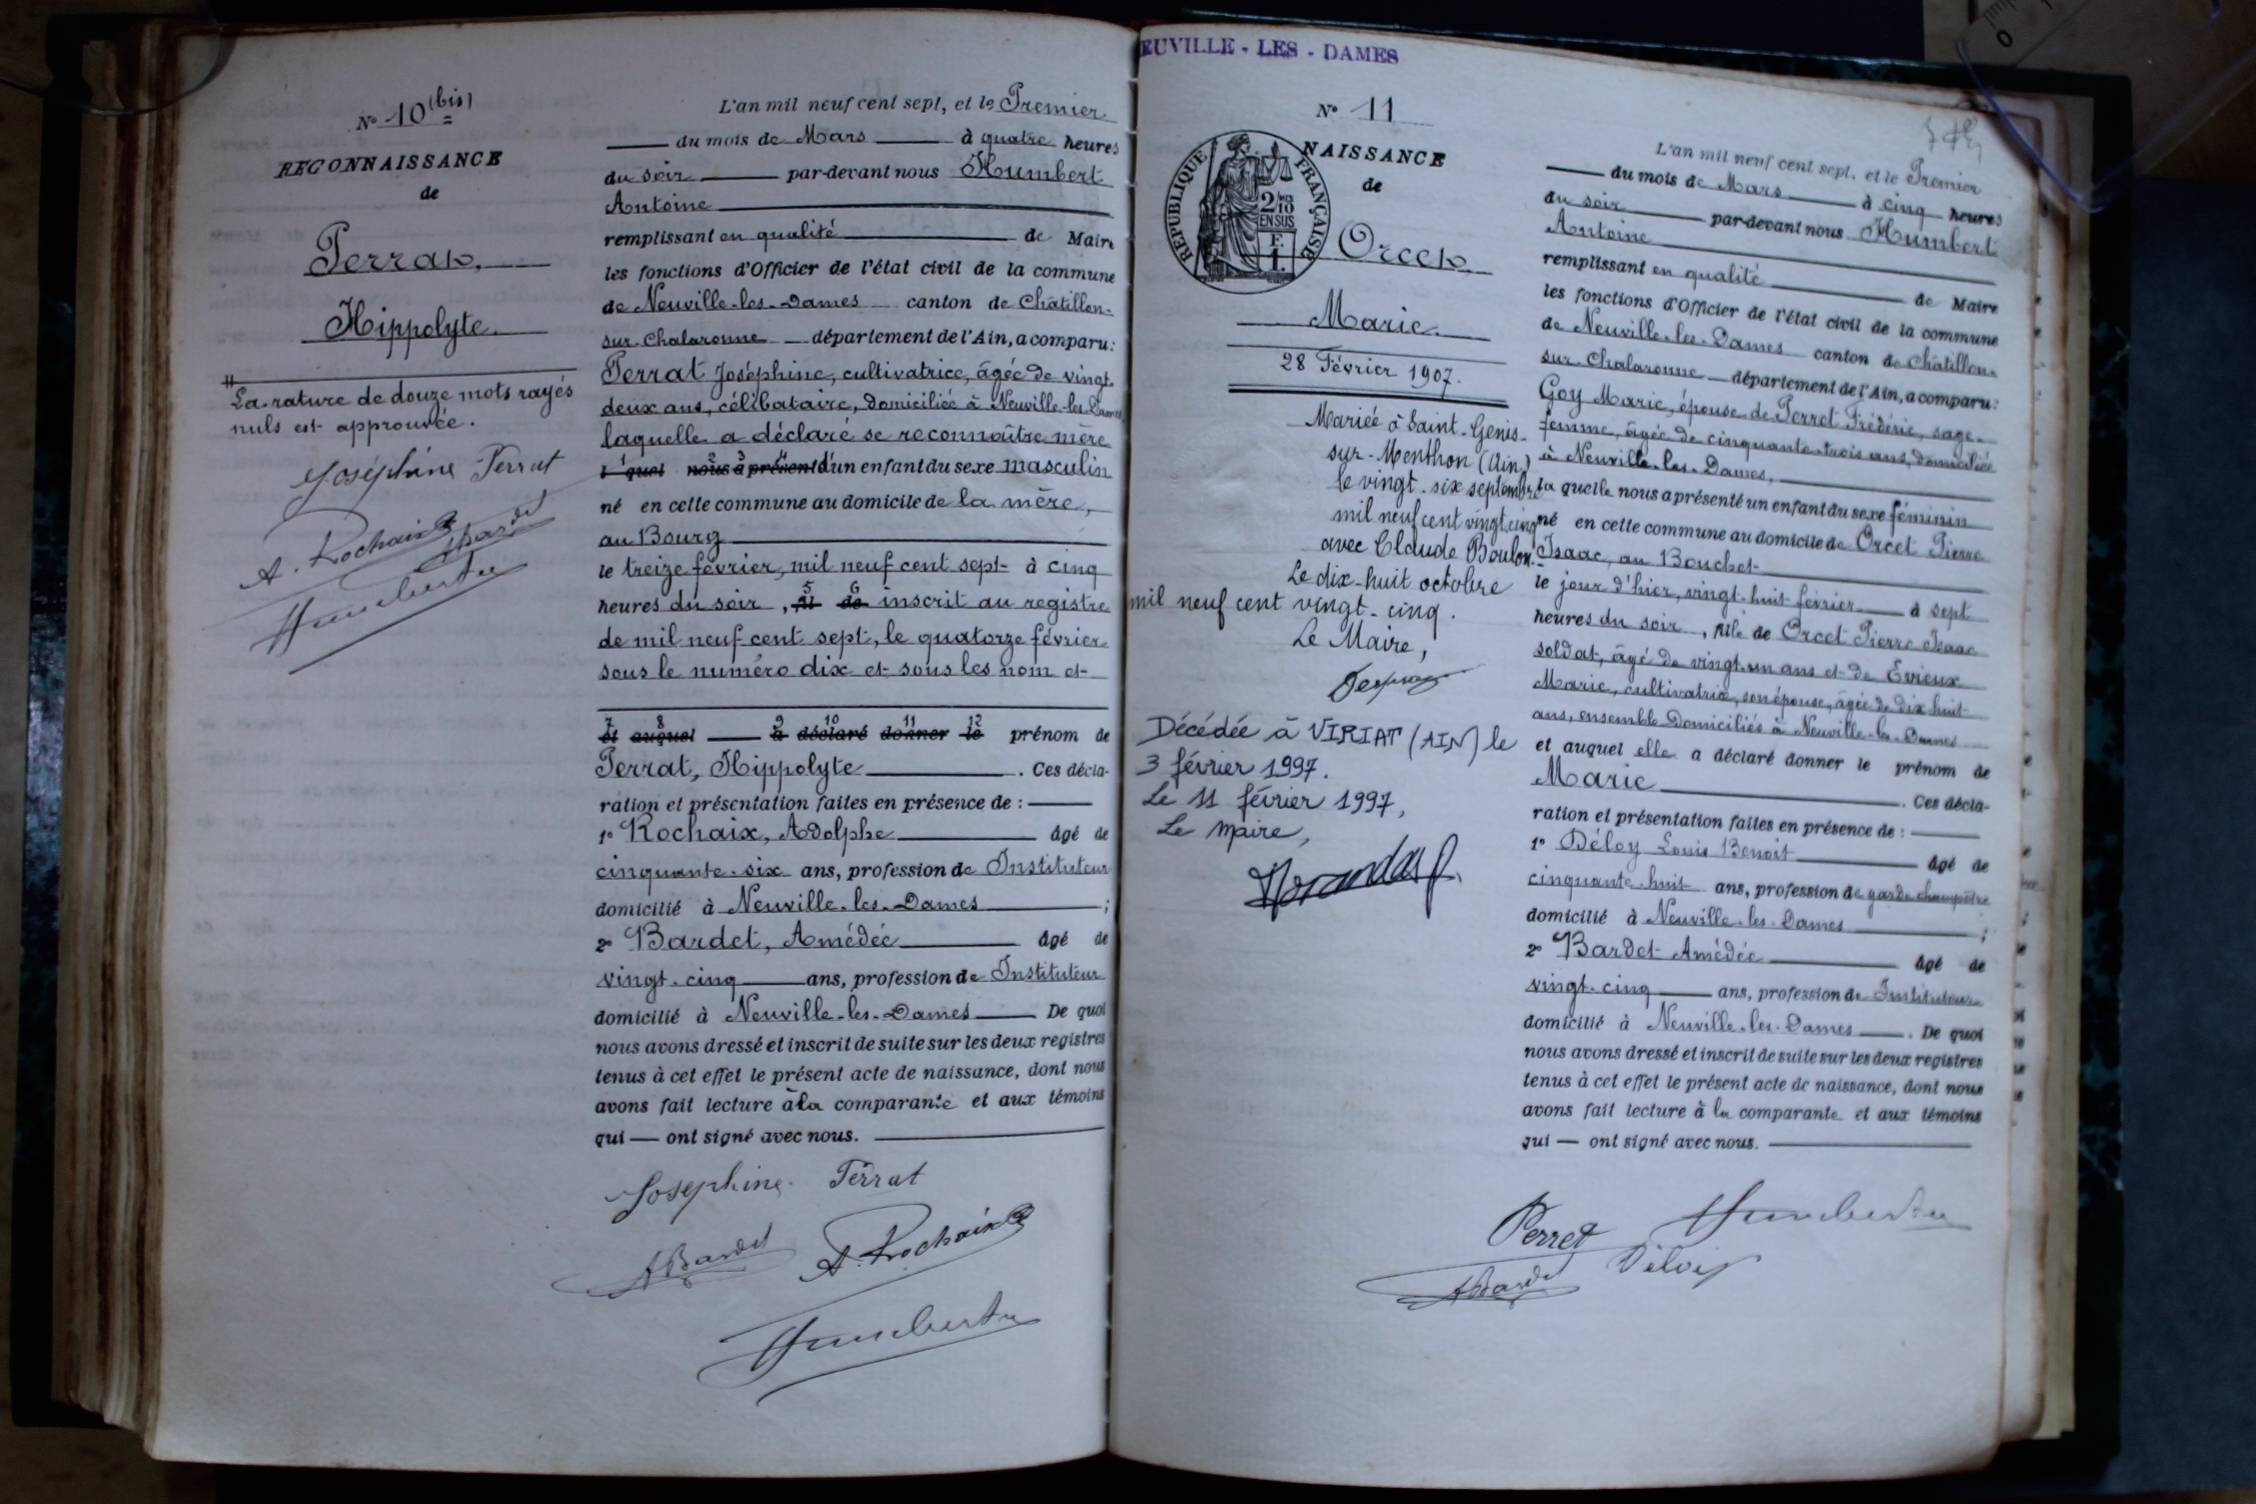 N° 10 (bis)
RECONNAISSANCE
de
Perrat,
Hippolyte.
La rature de douze mots rayés
nuls est approuvée.
Joséphine Perrat
A. Rochaix
ABardet
Humbert
L'an mil neuf cent sept, et le Premier
du mois de Mars à quatre heures
du soir par-devant nous Humbert
Antoine
remplissant en qualité de Maire
les fonctions d'Officier de l'état civil de la commune
de Neuville-les-Dames canton de Châtillon-
sur-Chalaronne département de l'Ain, a comparu:
Perrat Joséphine, cultivatrice, âgée de vingt-
deux ans, célibataire, domiciliée à Neuville-les-Dames,
laquelle a déclaré se reconnaître mère
1 2 3 4
l quel nous a présenté d'un enfant du sexe masculin
né en cette commune au domicile de la mère,
au Bourg
le treize février, mil neuf cent sept à cinq
5 6
heures du soir, fil de inscrit au registre
de mil neuf cent sept, le quatorze février
sous le numéro dix et sous les nom et
7 8 9 10 11 12
et auquel a déclaré donner le prénom de
Perrat, Hippolyte. Ces décla-
ration et présentation faites en présence de :
1° Rochaix, Adolphe âgé de
cinquante-six ans, profession de Instituteur
domicilié à Neuville-les-Dames ;
2° Bardet, Amédée âgé de
vingt-cinq ans, profession de Instituteur
domicilié à Neuville-les-Dames De quoi
nous avons dressé et inscrit de suite sur les deux registres
tenus à cet effet le présent acte de naissance, dont nous
avons fait lecture à la comparante et aux témoins
qui — ont signé avec nous.
Joséphine Perrat
ABardet A. Rochaix
Humbert
EUVILLE - LES - DAMES
N° 11
NAISSANCE
de
RÉPUBLIQUE FRANÇAISE
2/10 MES
EN SUS
F.
1.
Orcet,
Marie.
28 Février 1907.
Mariée à Saint-Genis-
sur-Menthon (Ain)
le vingt-six septembre
mil neuf cent vingt cinq
avec Claude Boulon.-
Le dix-huit octobre
mil neuf cent vingt-cinq.
Le Maire,
Décédée à VIRIAT (AIN) le
3 février 1997.
Le 11 février 1997,
Le Maire,
L'an mil neuf cent sept, et le Premier
du mois de Mars à cinq heures
du soir par-devant nous Humbert
Antoine
remplissant en qualité de Maire
les fonctions d'Officier de l'état civil de la commune
de Neuville-les-Dames canton de Châtillon-
sur-Chalaronne département de l'Ain, a comparu:
Goy Marie, épouse de Perret Frédéric, sage-
femme, âgée de cinquante-trois ans, domiciliée
à Neuville-les-Dames,
la quelle nous a présenté un enfant du sexe féminin
né en cette commune au domicile de Orcet Pierre
Isaac, au Bouchet
le jour d'hier, vingt-huit février à sept
heures du soir, fille de Orcet Pierre Isaac
soldat, âgé de vingt-un ans et de Evieux
Marie, cultivatrice, son épouse, âgée de dix-huit
ans, ensemble domiciliés à Neuville-les-Dames
et auquel elle a déclaré donner le prénom de
Marie. Ces décla-
ration et présentation faites en présence de :
1° Déloy Louis Benoit âgé de
cinquante-huit ans, profession de garde champêtre
domicilié à Neuville-les-Dames ;
2° Bardet Amédée âgé de
vingt-cinq ans, profession de Instituteur
domicilié à Neuville-les-Dames. De quoi
nous avons dressé et inscrit de suite sur les deux registres
tenus à cet effet le présent acte de naissance, dont nous
avons fait lecture à la comparante et aux témoins
qui — ont signé avec nous.
Perret Humbert
ABardet